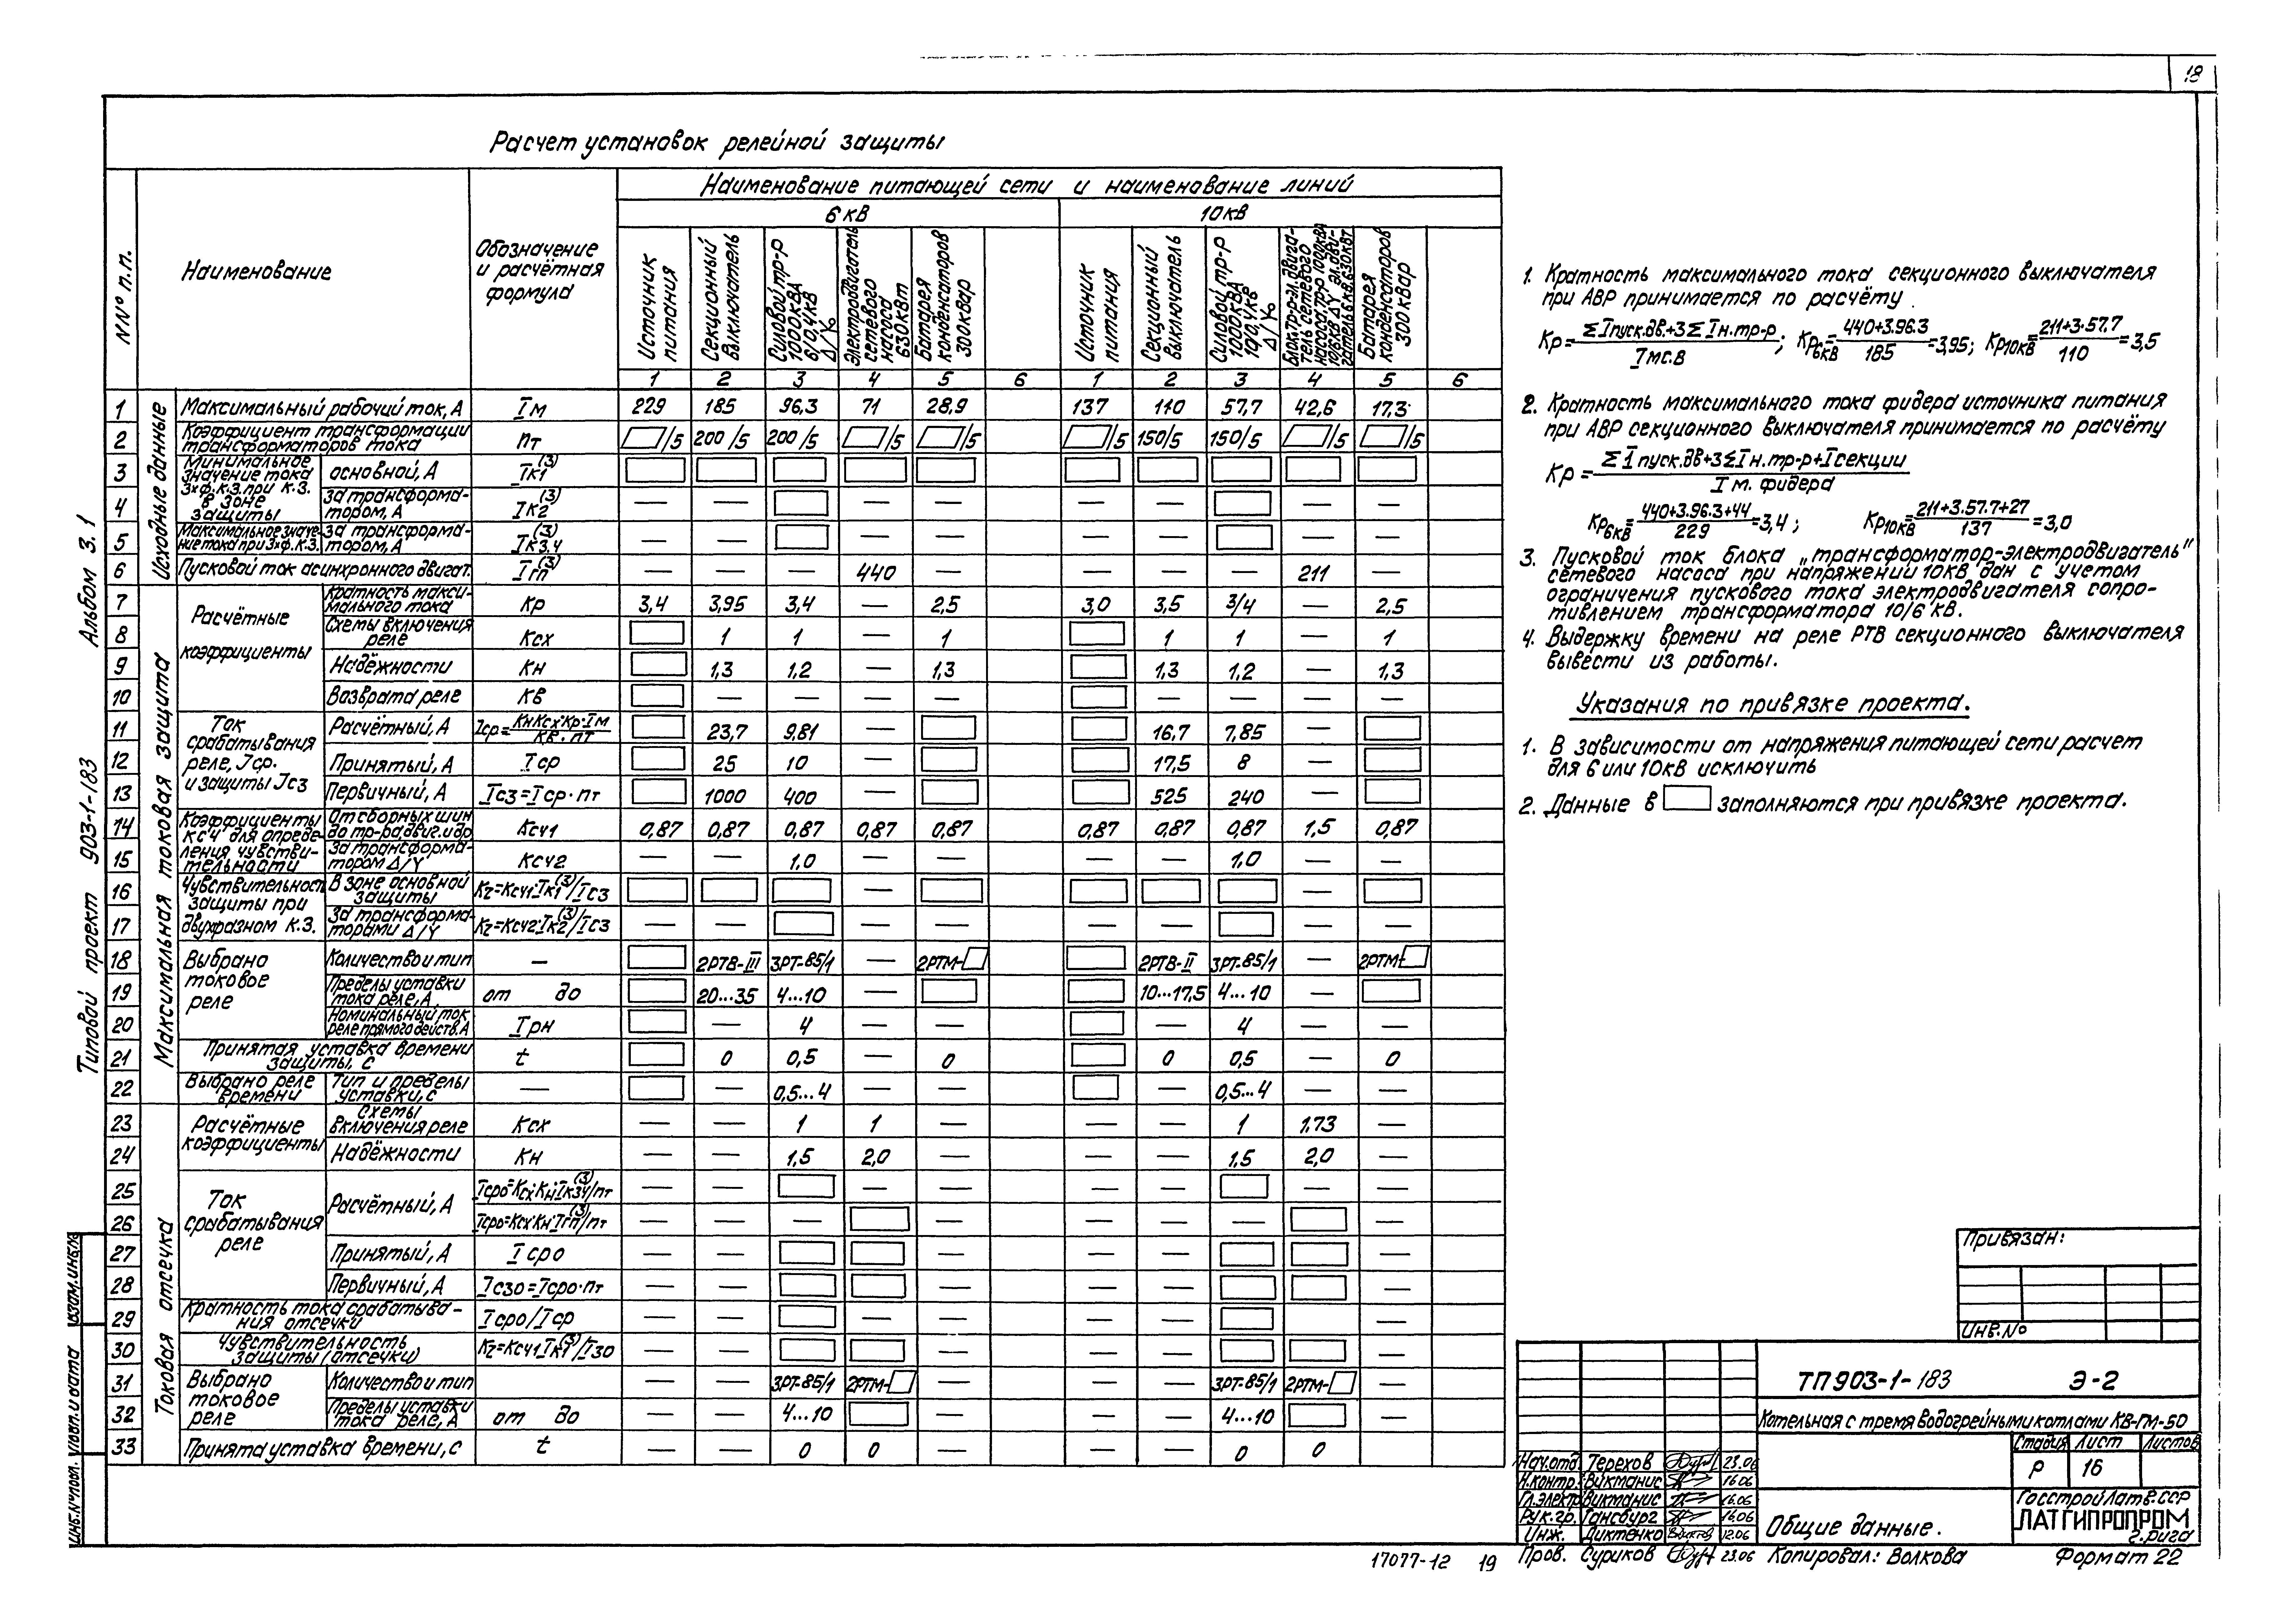 18
Расчет установок релейной защиты
NN° п.п.
Наименование
Обозначение
и расчётная
формула
Наименование питающей сети и наименование линий
6 кВ
10 кВ
Источник питания
Секционный выключатель
Силовой тр-р 1000кВА 6/0,4кВ Δ/Y₀
Электродвигатель сетевого насоса 630кВт
Батарея конденсаторов 300квар
Источник питания
Секционный выключатель
Силовой тр-р 1000кВА 10/0,4кВ Δ/Y₀
Батарея конденсаторов 300квар
1 2 3 4 5 6 1 2 3 4 5 6
Исходные данные
1 Максимальный рабочий ток, А Iм 229 185 96,3 71 28,9 137 110 57,7 42,6 17,3
2 Коэффициент трансформации трансформаторов тока nт /5 200/5 200/5 /5 /5 /5 150/5 150/5 /5 /5
Минимальное значение тока 3хф.К.З. при К.З. в зоне защиты
3 основной, А Iк1(3)
4 за трансформатором, А Iк2(3) — — — — — — — —
5 Максимальное значение тока при 3хф.К.З. за трансформатором, А Iк3,4(3) — — — — — — — —
6 Пусковой ток асинхронного двигат. Iгп(3) — — — 440 — — — — 211 —
Максимальная токовая защита
Расчётные коэффициенты
7 Кратность максимального тока Кр 3,4 3,95 3,4 — 2,5 3,0 3,5 3/4 — 2,5
8 Схемы включения реле Ксх 1 1 — 1 1 1 — 1
9 Надёжности Кн 1,3 1,2 — 1,3 1,3 1,2 — 1,3
10 Возврата реле Кв — — — — — — — —
Ток срабатывания реле, Jср. и защиты Jсз
11 Расчётный, А Iср=Кн·Ксх·Кр·Iм/Кв·nт 23,7 9,81 — 16,7 7,85 —
12 Принятый, А Iср 25 10 — 17,5 8 —
13 Первичный, А Iсз=Iср·nт 1000 400 — 525 240 —
Коэффициенты Ксч для определения чувствительности
14 От сборных шин до тр-ра, двиг. и др Ксч1 0,87 0,87 0,87 0,87 0,87 0,87 0,87 0,87 1,5 0,87
15 За трансформатором Δ/Y Ксч2 — — 1,0 — — — — 1,0 — —
Чувствительность защиты при двухфазном К.З.
16 В зоне основной защиты Кг=Ксч1·Iк1(3)/Iсз — —
17 За трансформаторами Δ/Y Кг=Ксч2·Iк2(3)/Iсз — — — — — — — —
Выбрано токовое реле
18 Количество и тип — 2РТВ-III 3РТ-85/1 — 2РТМ- 2РТВ-II 3РТ-85/1 — 2РТМ-
19 Пределы уставки тока реле, А от до 20...35 4...10 — 10...17,5 4...10 —
20 Номинальный ток реле прямого действ. А Iрн — 4 — — — 4 — —
21 Принятая уставка времени защиты, с t 0 0,5 — 0 0 0,5 — 0
22 Выбрано реле времени Тип и пределы уставки, с — — 0,5...4 — — — 0,5...4 — —
Токовая отсечка
Расчётные коэффициенты
23 Схемы включения реле Ксх — — 1 1 — — — 1 1,73 —
24 Надёжности Кн — — 1,5 2,0 — — — 1,5 2,0 —
Ток срабатывания реле
Расчётный, А
25 Iсро=Ксх·Кн·Iк3,4(3)/nт — — — — — — — —
26 Iсро=Ксх·Кн·Iгп(3)/nт — — — — — — — —
27 Принятый, А Iсро — — — — — —
28 Первичный, А Iсзо=Iсро·nт — — — — — —
29 Кратность тока срабатывания отсечки Iсро/Iср — — — — — — — —
30 Чувствительность защиты (отсечки) Кг=Ксч1·Iк1(3)/Iзо — — — — — —
Выбрано токовое реле
31 Количество и тип — — 3РТ-85/1 2РТМ- — — — 3РТ-85/1 2РТМ- —
32 Пределы уставки тока реле, А от до — — 4...10 — — — 4...10 —
33 Принята уставка времени, с t — — 0 0 — — — 0 0 —
1. Кратность максимального тока секционного выключателя
при АВР принимается по расчёту.
Кр=ΣIпуск.дв+3ΣIн.тр-р/Iмс.в; Кр6кВ=440+3.96.3/185=3,95; Кр10кВ=211+3·57.7/110=3,5
2. Кратность максимального тока фидера источника питания
при АВР секционного выключателя принимается по расчёту
Кр=ΣIпуск.дв+3ΣIн.тр-р+Iсекции/Iм. фидера
Кр6кВ=440+3.96.3+44/229=3,4; Кр10кВ=211+3.57.7+27/137=3,0
3. Пусковой ток блока „трансформатор-электродвигатель"
сетевого насоса при напряжении 10кВ дан с учетом
ограничения пускового тока электродвигателя сопро-
тивлением трансформатора 10/6 кВ.
4. Выдержку времени на реле РТВ секционного выключателя
вывести из работы.
Указания по привязке проекта.
1. В зависимости от напряжения питающей сети расчет
для 6 или 10кВ исключить
2. Данные в заполняются при привязке проекта.
Типовой проект 903-1-183 Альбом 3.1
Инв.№подл. Подп. и дата Взам.инв.№
Привязан:
Инв.№
ТП 903-1-183 Э-2
Котельная с тремя водогрейными котлами КВ-ГМ-50
Стадия Лист Листов
Р 16
Нач.отд. Терехов 23.06
Н.контр. Викманис 16.06
Гл.электр Викманис 16.06
Рук.гр. Гансбург 16.06
Инж. Диктенко 12.06
Пров. Суриков 23.06
Общие данные.
Госстрой Латв.ССР
ЛАТГИПРОПРОМ
г.Рига
17077-12 19
Копировал: Волкова
Формат 22